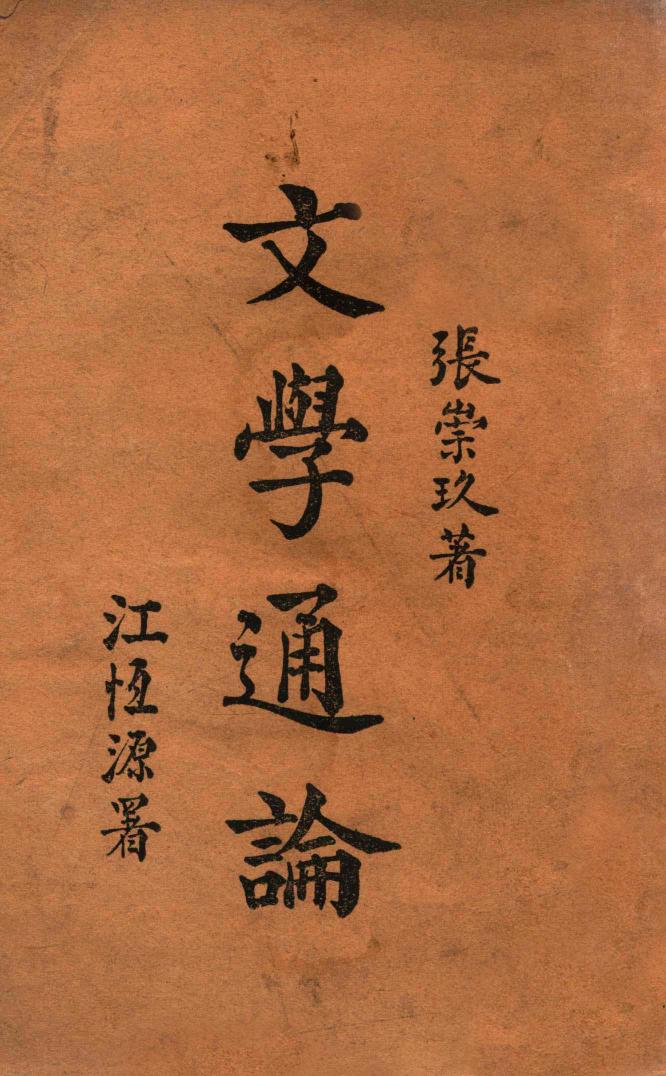 張崇玖著
文學通論
江恆源署